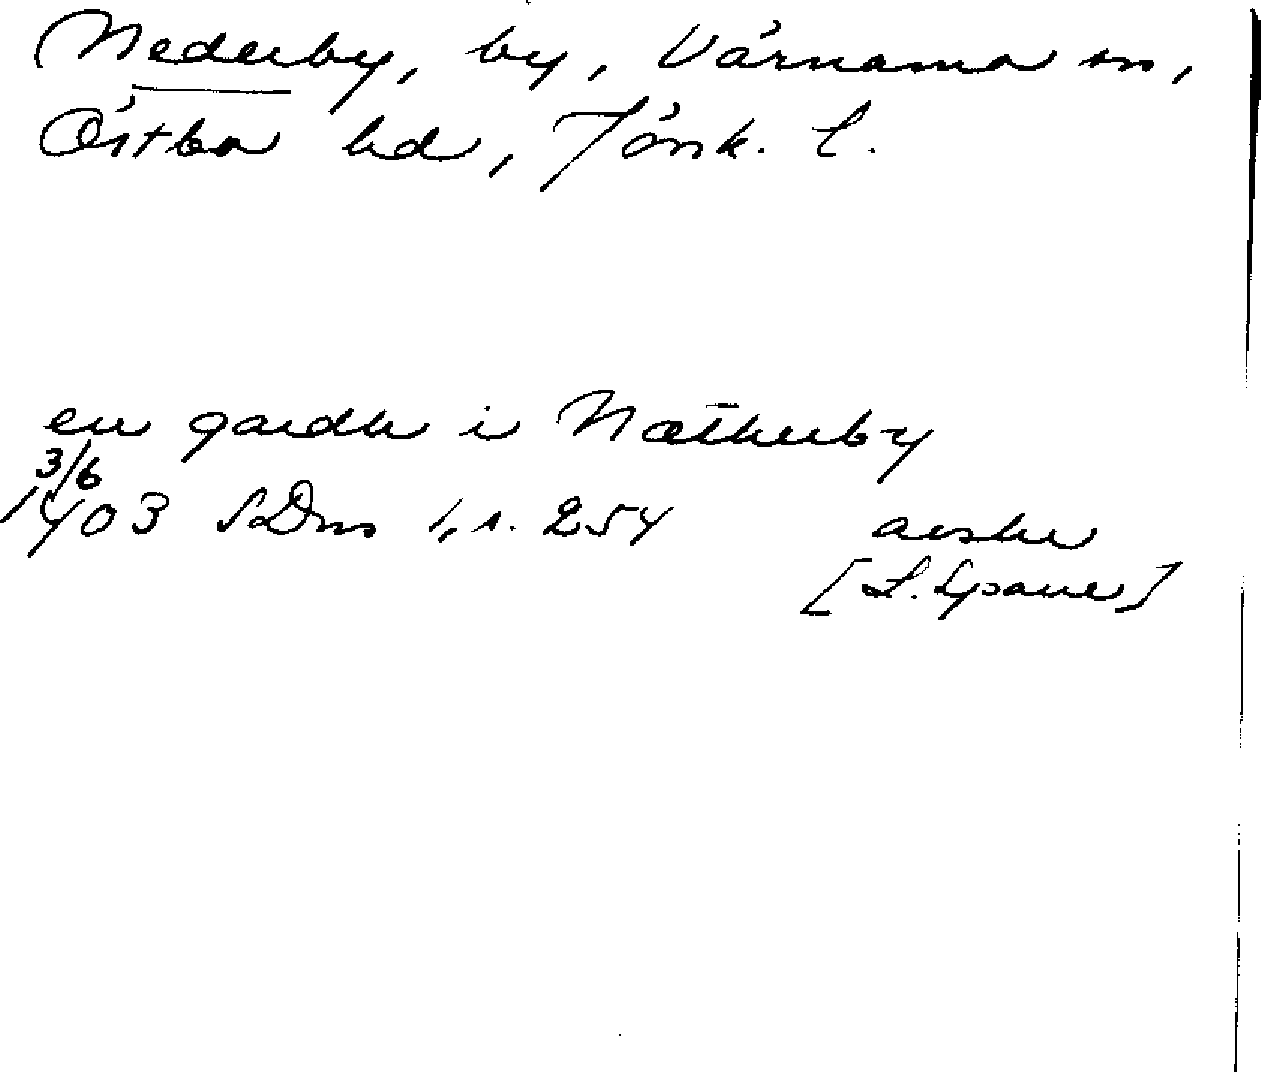 Nederby, by, Värnamo sn,
Östbo hd, Jönk. l.
en gardh i Nætherby
3/6
1403 SDns 1, s. 254
avskr
[L. Spane]